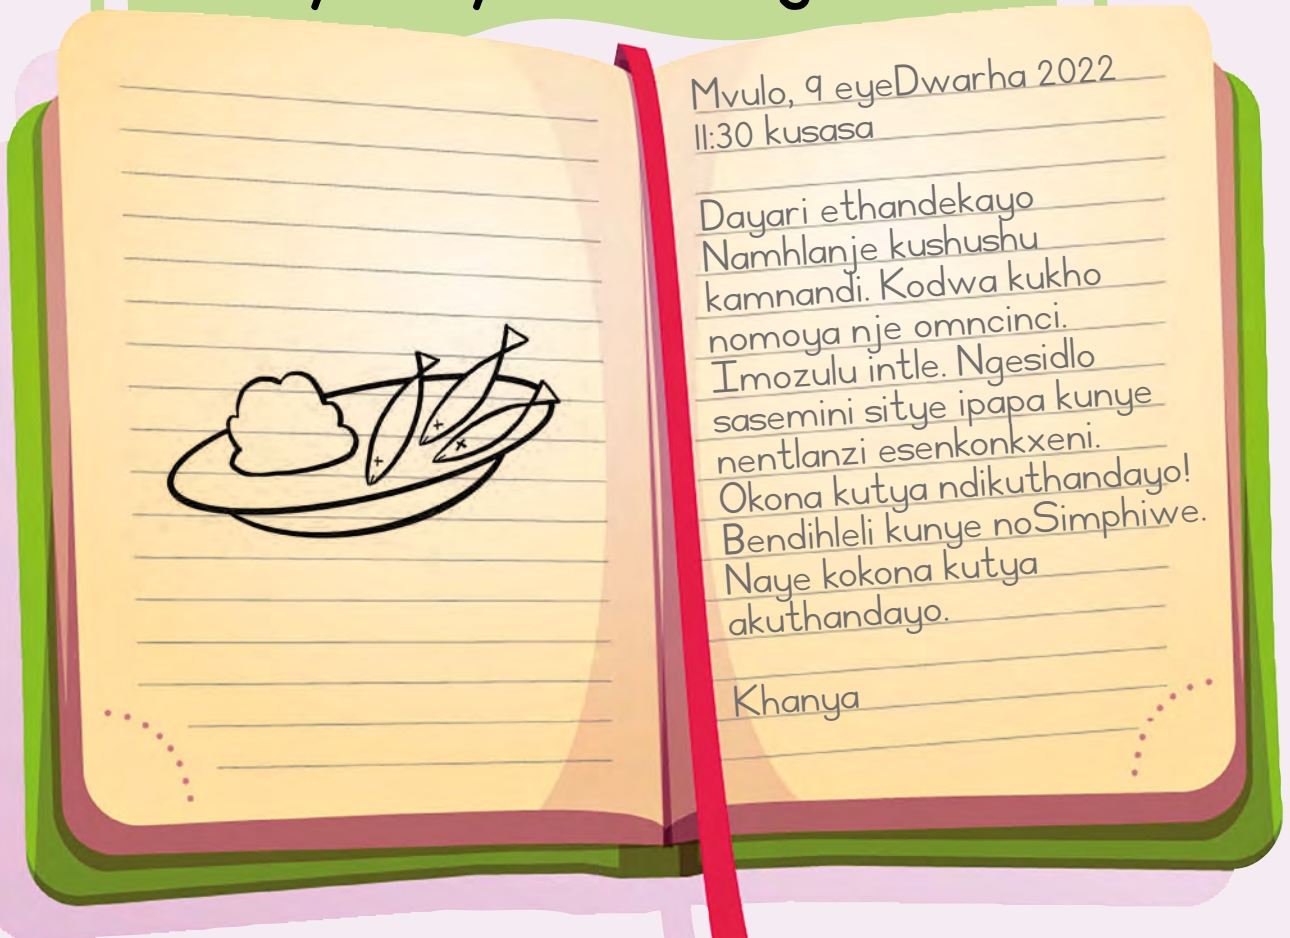 Mvulo, 9 eyeDwarha 2022
11:30 kusasa
Dayari ethandekayo
Namhlanje kushushu
kamnandi. Kodwa kukho
nomoya nje omncinci.
Imozulu intle. Ngesidlo
sasemini sitye ipapa kunye
nentlanzi esenkonkxeni.
Okona kutya ndikuthandayo!
Bendihleli kunye noSimphiwe.
Naye kokona kutya
akuthandayo.
Khanya